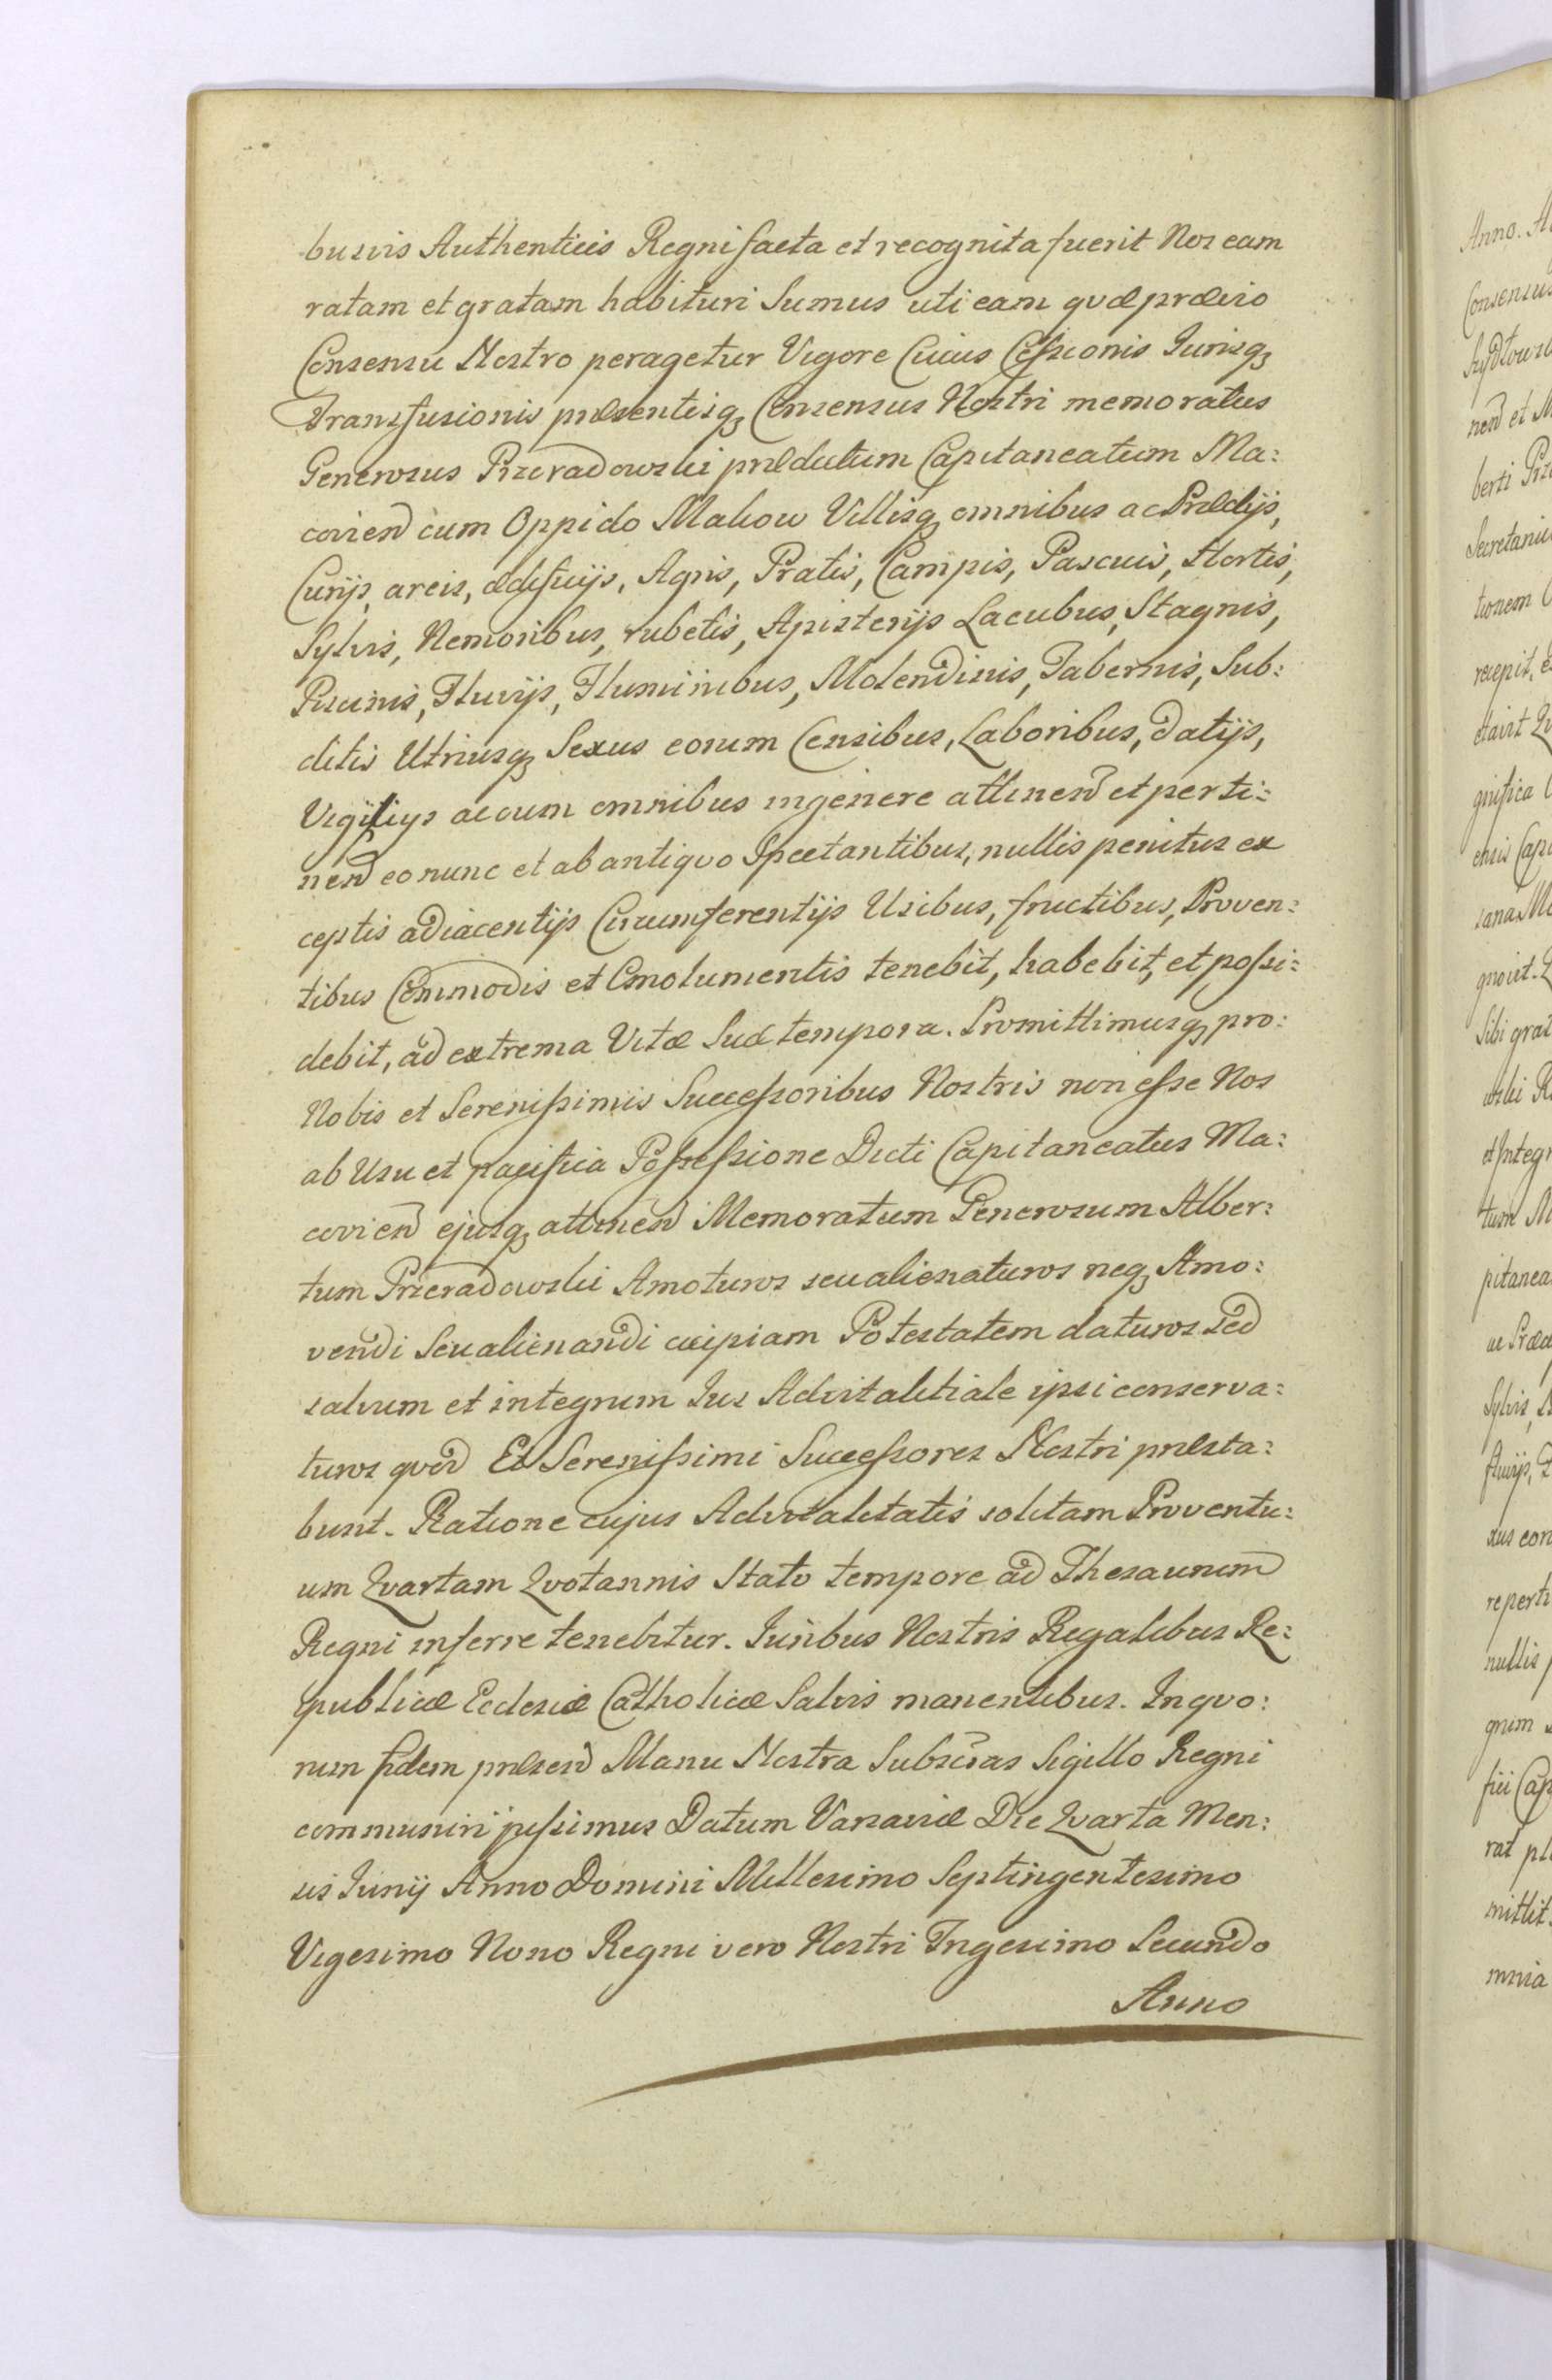 busvis Authenticis Regni facta et recognita fuerit Nos eam
ratam et gratam habituri Sumus uti eam qvæ prævio
Consensu Nostro peragetur Vigore Cuius Cessionis Jurisq;
Transfusionis præsentisq; Consensus Nostri memoratus
Generosus Przeradowski prædictum Capitaneatum Ma:
covien cum Oppido Makow Villisq; omnibus ac Prædijs,
Curijs, areis, ædificijs, Agris, Pratis, Campis, Pascuis, Hortis,
Sylvis, Nemoribus, rubetis, Apisterijs Lacubus, Stagnis,
Piscinis, Fluvijs, Fluminibus, Molendinis, Tabernis, Sub:
ditis Utriusq; Sexus eorum Censibus, Laboribus, datijs,
Vigilijs ac cum omnibus ingenere attinen et perti:
nen eo nunc et ab antiqvo Spectantibus, nullis penitus ex
ceptis adiacentijs Circumferentijs Usibus, fructibus, Proven:
tibus Commodis et Emolumentis tenebit, habebit, et possi:
debit, ad extrema Vitæ Suæ tempora. Promittimusq; pro:
Nobis et Serenissimis Successoribus Nostris non esse Nos
ab Usu et pacifica Possessione Dicti Capitaneatus Ma:
covien ejusq; attinen Memoratum Generosum Alber:
tum Przeradowski Amoturos seu alienaturos neq; Amo:
vendi Seu alienandi cuipiam Potestatem daturos Sed
salvum et integrum Jus Advitalitiale ipsi conserva:
turos qvod Et Serenissimi Successores Nostri præsta:
bunt. Ratione cujus Advitalitatis solitam Proventu:
um Qvartam Qvotannis Stato tempore ad Thesaurum
Regni inferre tenebitur. Juribus Nostris Regalibus Re:
publicæ Ecclesiæ Catholicæ Salvis manentibus. In qvo:
rum fidem præsen Manu Nostra Subscras Sigillo Regni
communiri jussimus Datum Varsaviæ Die Qvarta Men:
sis Junij Anno Domini Millesimo Septingentesimo
Vigesimo Nono Regni vero Nostri Trigesimo Secundo
Anno